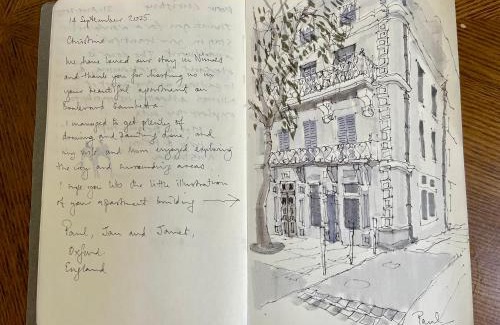 14 September 2025.
Christine
We have loved our stay in Nimes
and thank you for hosting us in
your beautiful apartment on
Boulevard Gambetta
I managed to get plenty of
drawing and painting done and
my wife and Mum enjoyed exploring
the city and surrounding areas.
I hope you like the little illustration
of your apartment building →
Paul, Jan and Janet,
Oxford
England
Paul